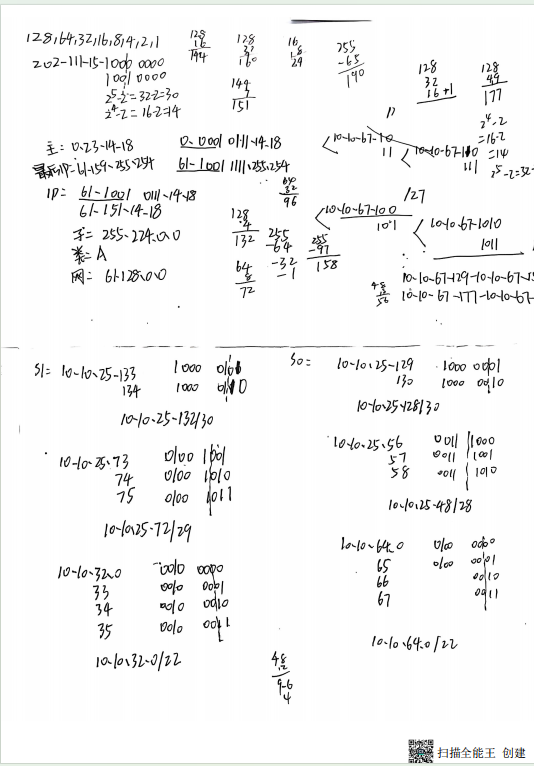 128,64,32,16,8,4,2,1
202-111-15-1000 0000
1001 0000
2^5-2=32-2=30
2^4-2=16-2=14
128
16
144
128
32
160
144
7
151
255
-65
190
128
32
16 +1
128
49
177
2^4-2
=16-2
=14
2^5-2=32-2
主: 0.23-14-18
0.0001 0111-14-18
61-159-255-254
61-1001 1111.255.254
IP= 61-1001 0111-14-18
61-151-14-18
= 255-224.0.0
类=A
网: 61-128.0.0
64
32
96
128
4
132
64
8
72
255
-64
-32
-1
255
-97
158
10-10-67-10
11
10-10-67-110
111
127
10-10-67-100
101
10-10-67-1010
1011
48
8
56
10-10-67-129-10-10-67-15
10-10-67-177-10-10-67-
S1= 10-10.25-133 1000 0101
134 1000 0110
10-10.25-132/30
10-10.25.73 0100 1001
74 0100 1010
75 0100 1011
10-10.25-72/29
10-10.32.0 0010 0000
33 0010 0001
34 0010 0010
35 0010 0011
10-10.32.0/22
S0= 10-10.25-129 1000 0001
130 1000 0010
10-10.25-128/30
10-10.25.56 0011 1000
57 0011 1001
58 0011 1010
10-10.25-48/28
10-10.64.0 0100 0000
65 0100 0001
66 0010
67 0011
10-10.64.0/22
48
12
9-6
4
扫描全能王 创建